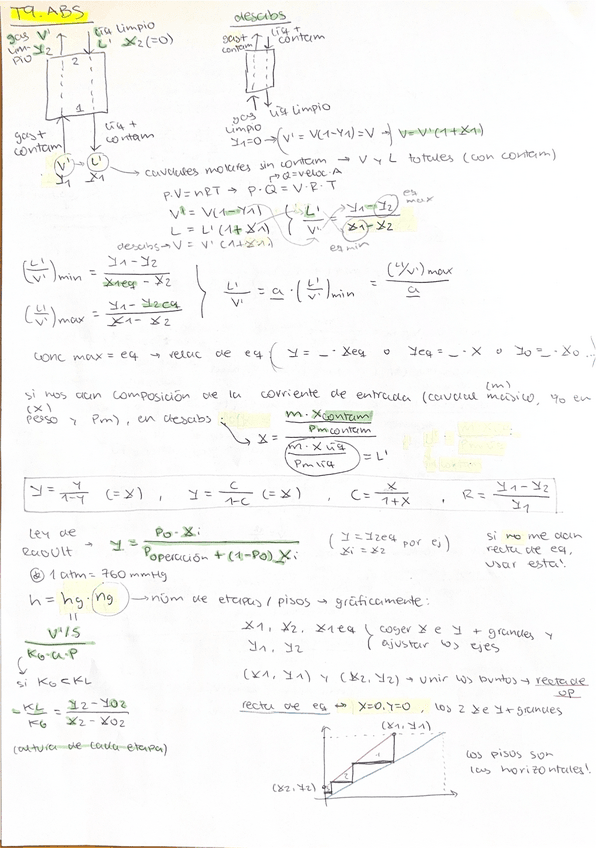 T9. ABS
gas limpio V' Y2
líq limpio L' X2 (=0)
2
1
gas + contam
líq + contam
V' Y1
L' X1
desabs
gas + contam
líq + contam
gas limpio Y1=0
líq limpio
→ (V' = V(1-Y1) = V → V = V'(1+X1)
→ caudales molares sin contam → V y L totales (con contam)
P·V = nRT → P·Q = V·R·T
Q = veloc·A
V' = V(1-Y1)
L = L'(1+X1)
desabs → V = V'(1+X1)
L'/V' = (Y1-Y2)/(X1-X2)
es max
es min
(L'/V')min = (Y1-Y2)/(X1eq - X2)
(L'/V')max = (Y1-Y2eq)/(X1-X2)
L'/V' = a · (L'/V')min = (L'/V')max / a
conc max = eq → relac de eq (Y = _·Xeq o Yeq = _·X o Y0 = _·X0 ...)
si nos dan composición de la corriente de entrada (caudal másico, % en
(m)
(x)
peso y Pm), en desabs
X = (m·Xcontam / Pmcontam) / (m·Xlíq / Pmlíq) = L'
Y = y/(1-y) (=X) , Y = C/(1-C) (=X) , C = X/(1+X) , R = (Y1-Y2)/Y1
Ley de Raoult → Y = P0·Xi / (Poperación + (1-P0)Xi)
(Y = Y2eq Xi = X2 por ej)
si no me dan recta de eq, usar esta!
1 atm = 760 mmHg
h = hg · ng → núm de etapas / pisos → gráficamente:
V'/S / KG·a·P
si KG<<KL
-KL/KG = (Y2-Y02)/(X2-X02)
(altura de cada etapa)
X1, X2, X1eq
Y1, Y2
coger X e Y + grandes y
ajustar los ejes
(X1, Y1) y (X2, Y2) → unir los puntos → recta de OP
recta de eq ⇔ X=0, Y=0, los 2 X e Y + grandes
(X1, Y1)
(X2, Y2)
1
2
los pisos son
las horizontales!